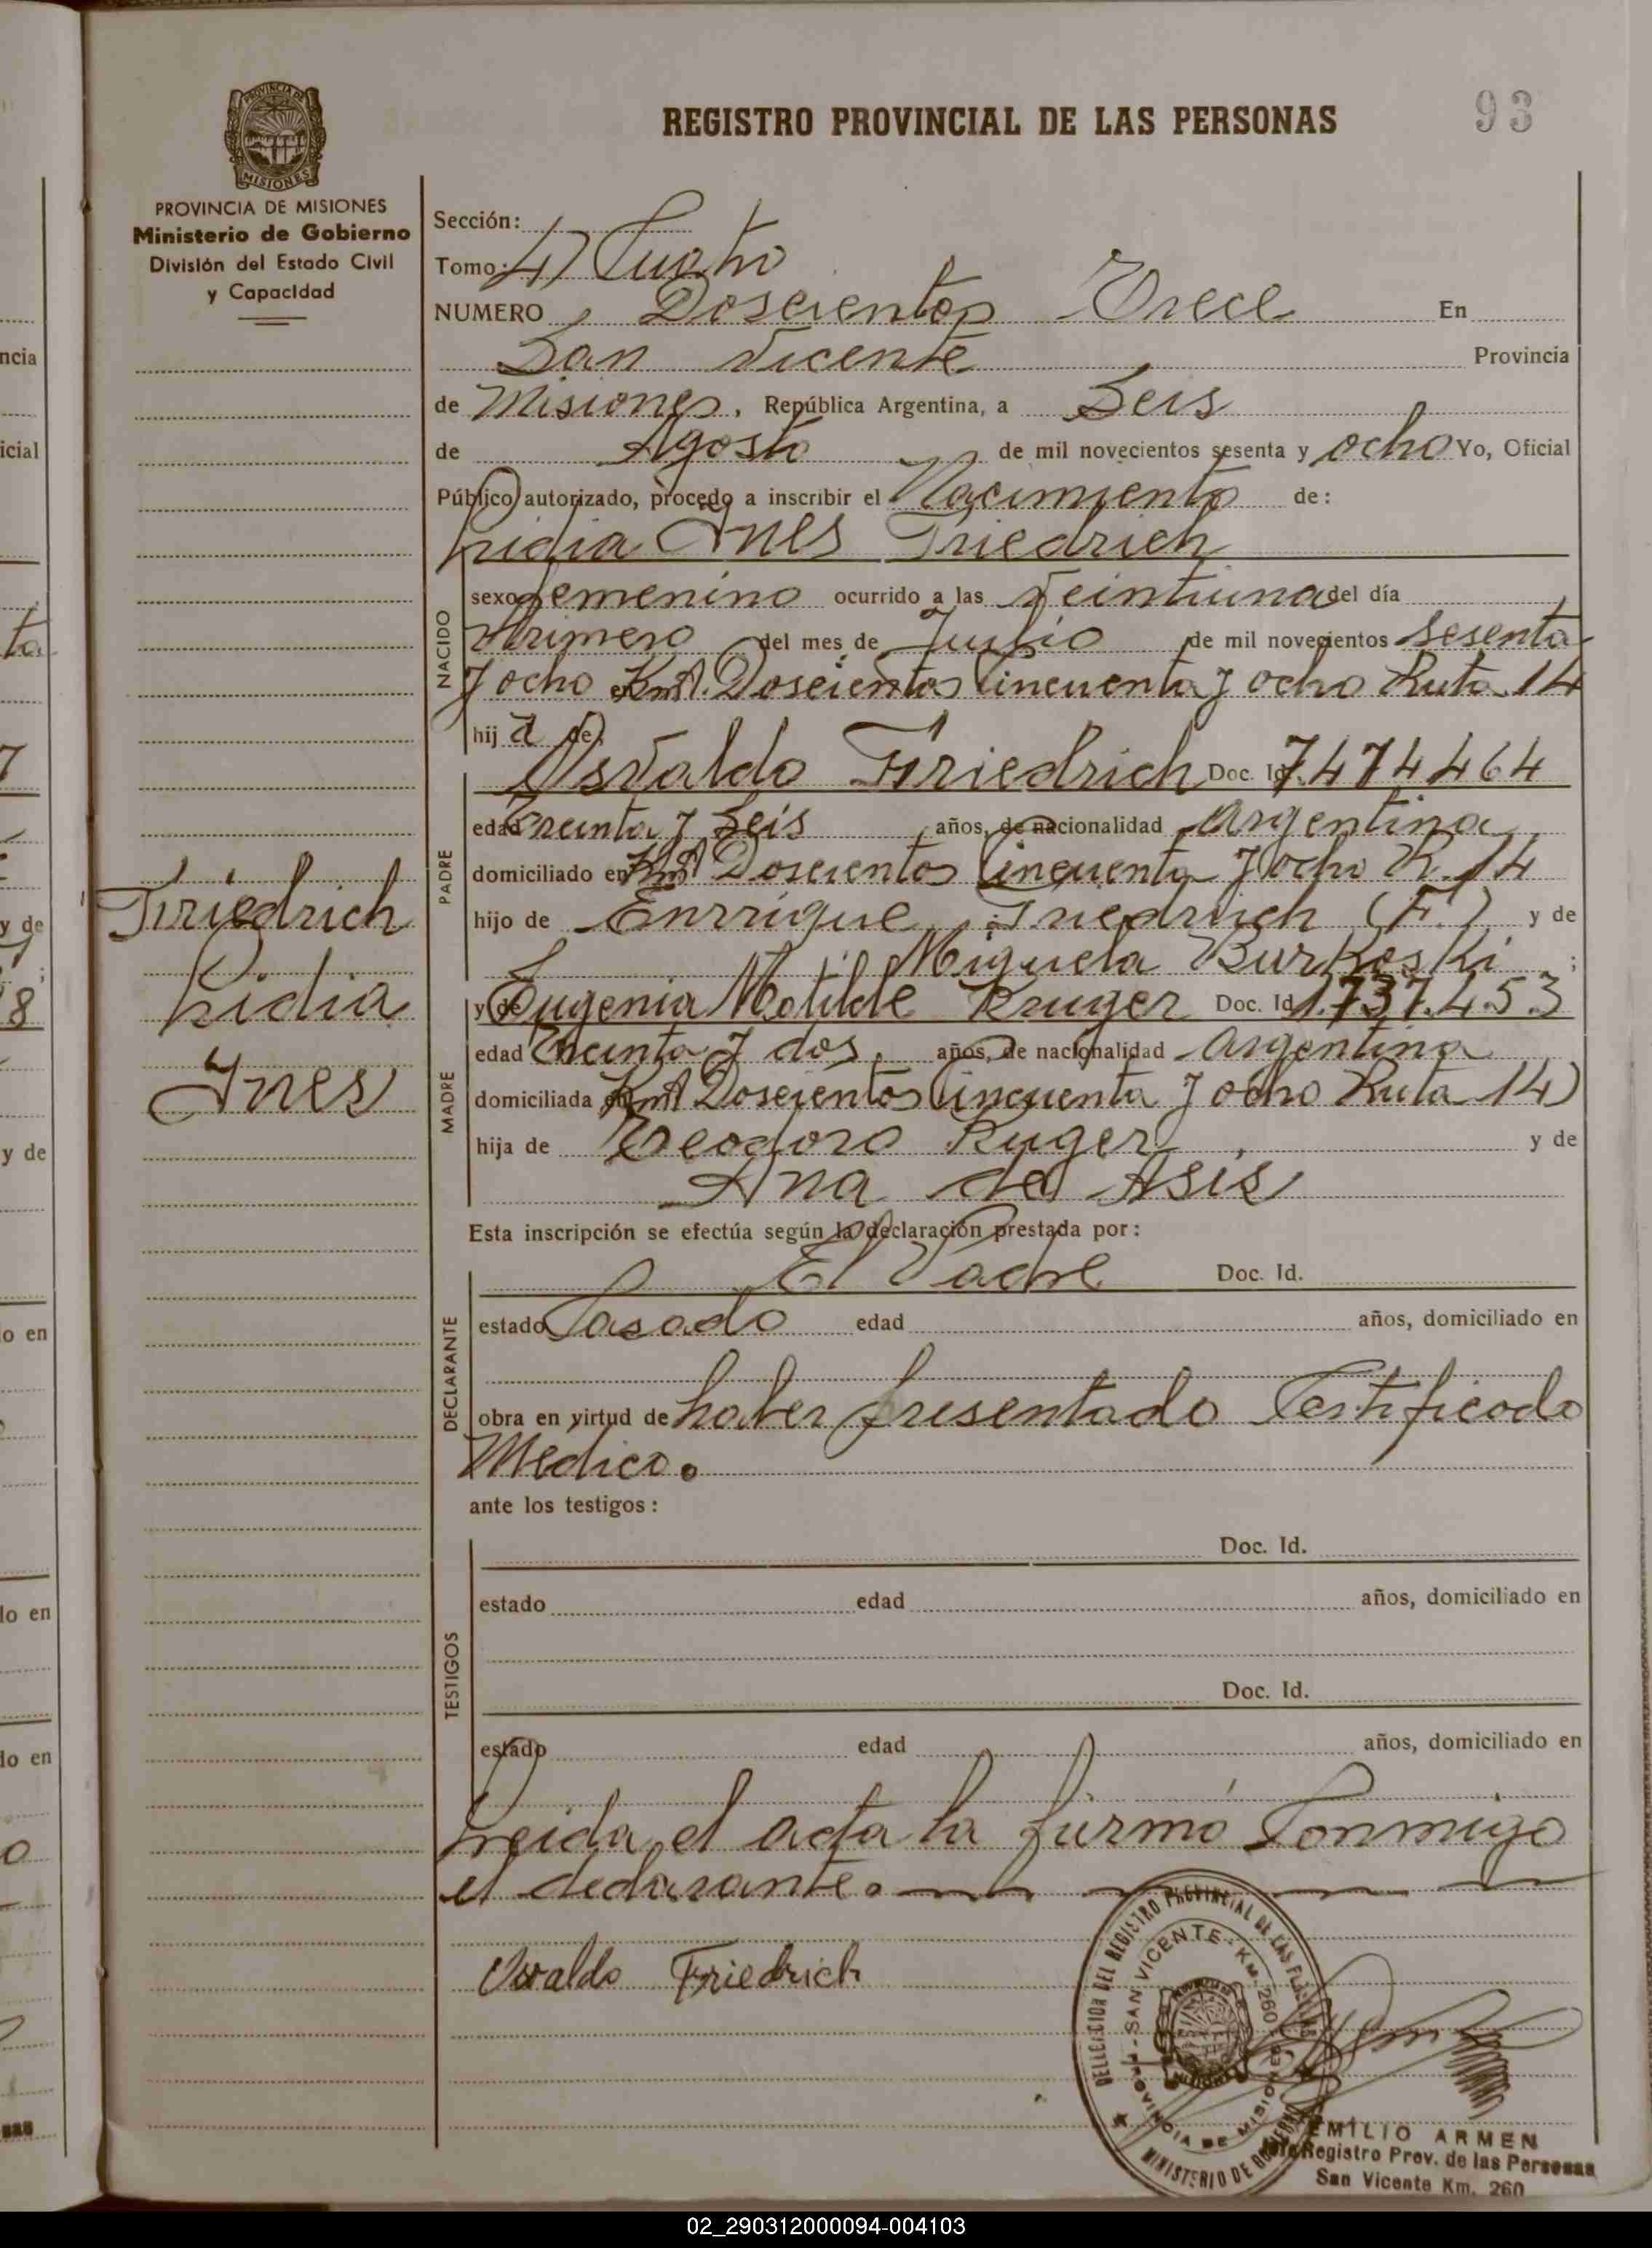 REGISTRO PROVINCIAL DE LAS PERSONAS
93
PROVINCIA DE MISIONES
PROVINCIA DE MISIONES
Ministerio de Gobierno
División del Estado Civil
y Capacidad
Sección:
Tomo: 4) Cuarto
NUMERO Doscientos Trece En
San Vicente Provincia
de Misiones, República Argentina, a Seis
de Agosto de mil novecientos sesenta y ocho Yo, Oficial
Público autorizado, procedo a inscribir el Nacimiento de:
Lidia Ines Friedrich
NACIDO
sexo femenino ocurrido a las Veintiuna del día
Primero del mes de Julio de mil novecientos sesenta
y ocho Km. Doscientos Cincuenta y ocho Ruta 14
hij a de
PADRE
Osvaldo Friedrich Doc. Id. 7474464
edad Treinta y Seis años, de nacionalidad Argentina
domiciliado en Km Doscientos Cincuenta y ocho R. 14
hijo de Enrrique Friedrich (F) y de
Miguela Burkoski ;
Friedrich
Lidia
Ines
MADRE
y de Eugenia Matilde Kruger Doc. Id. 1.737.453
edad Treinta y dos, años, de nacionalidad Argentina
domiciliada en Km Doscientos Cincuenta y ocho Ruta 14)
hija de Teodoro Kuger y de
Ana de Asis
Esta inscripción se efectúa según la declaración prestada por:
DECLARANTE
El Padre Doc. Id.
estado Casado edad años, domiciliado en
obra en virtud de haber presentado Certificado
Medico.
ante los testigos:
TESTIGOS
Doc. Id.
estado edad años, domiciliado en
Doc. Id.
estado edad años, domiciliado en
Leida el acta la firmó Conmigo
el declarante.
Osvaldo Friedrich
DELEGACION DEL REGISTRO PROVINCIAL DE LAS PERSONAS
SAN VICENTE - KM. 260
PROVINCIA DE MISIONES
MINISTERIO DE GOBIERNO
EMILIO ARMEN
Jefe Registro Prov. de las Personas
San Vicente Km. 260
02_290312000094-004103